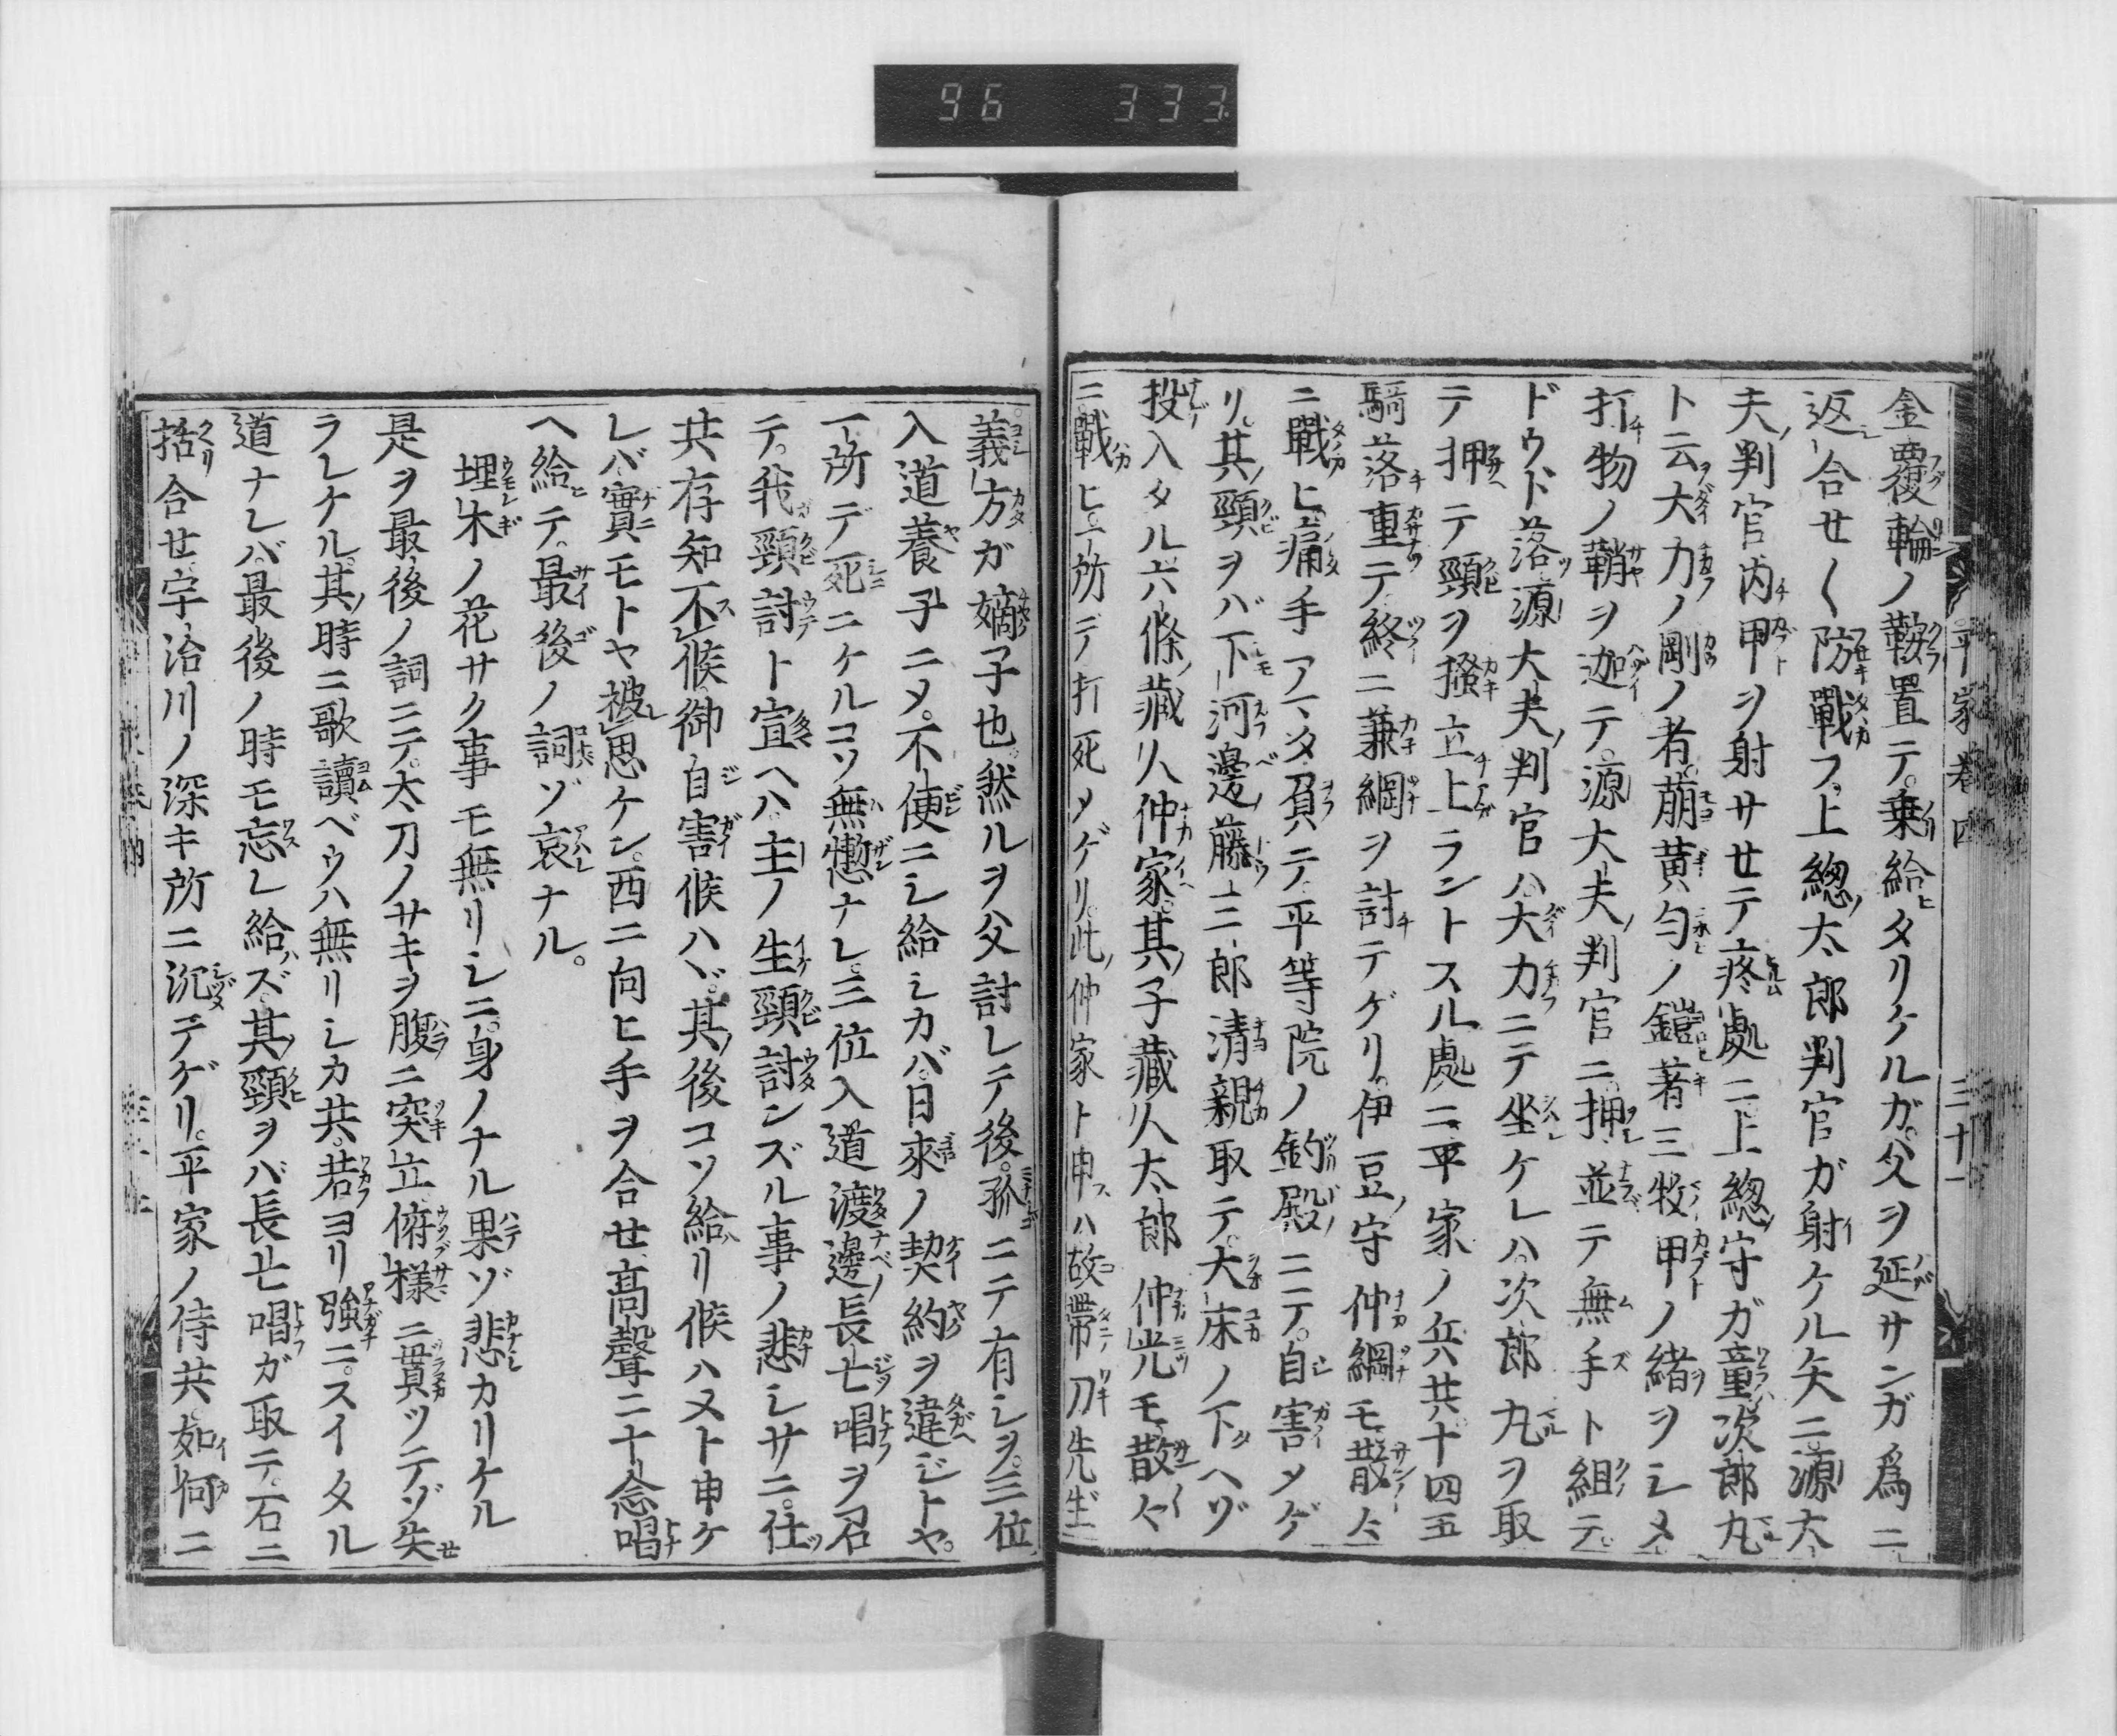 96 333
平家巻四 三十一
金覆輪ノ鞍置テ。乗給タリケルガ。父ヲ延サンガ為ニ
返シ合セ〱防戰フ。上總太郎判官ガ射ケル矢ニ。源大
夫判官内甲ヲ射サセテ疼處ニ。上總守ガ童次郎丸
ト云大力ノ剛ノ者。萠黄匂ノ鎧著三牧甲ノ緒ヲシメ
打物ノ鞘ヲ迦テ。源大夫判官ニ押並テ無手ト組テ。
ドウド落。源大夫判官ハ。大力ニテ坐ケレハ。次郎丸ヲ取
テ押テ頸ヲ掻立上ラントスル處ニ。平家ノ兵共。十四五
騎落重テ終ニ兼綱ヲ討テゲリ。伊豆守仲綱モ散々
ニ戰ヒ痛手アマタ負テ。平等院ノ釣殿ニテ。自害メゲ
リ。其頸ヲバ下河邊藤三郎清親取テ。大床ノ下ヘゾ
投入タル。六條藏人仲家。其子藏人太郎仲光モ。散々
ニ戰ヒ一所デ打死メゲリ。此仲家ト申スハ。故帶刀先生
義方ガ嫡子也。然ルヲ父討レテ後。孤ニテ有シヲ。三位
入道養子ニメ。不便ニシ給シカバ。日來ノ契約ヲ違ジトヤ。
一所デ死ニケルコソ無慙ナレ。三位入道渡邊長七唱ヲ召
テ。我頸討ト宣ヘハ。主ノ生頸討ンズル事ノ悲シサニ。仕
共存知不候。御自害候ハヾ。其後コソ給リ候ハメト申ケ
レバ。實モトヤ被思ケン。西ニ向ヒ手ヲ合セ。高聲ニ十念唱
ヘ給テ。最後ノ詞ゾ哀ナル。
埋木ノ花サク事モ無リシニ。身ノナル果ゾ悲カリケル
是ヲ最後ノ詞ニテ。太刀ノサキヲ腹ニ突立。俯樣ニ貫ツテゾ失
ラレケル。其時ニ歌讀ベウハ無リシカ共。若ヨリ強ニ。スイタル
道ナレバ。最後ノ時モ忘レ給ハズ。其頸ヲバ長七唱ガ取テ。石ニ
括合セ。宇治川ノ深キ所ニ沉テゲリ。平家ノ侍共。如何ニ